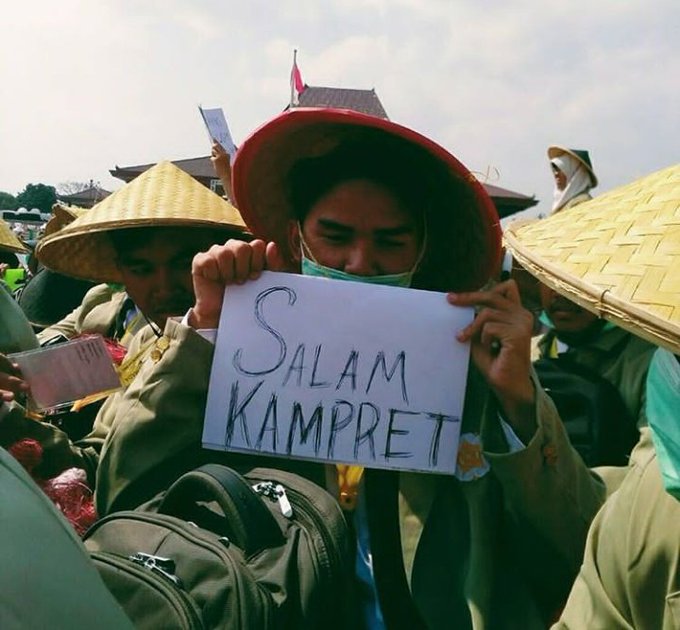 SALAM
KAMPRET